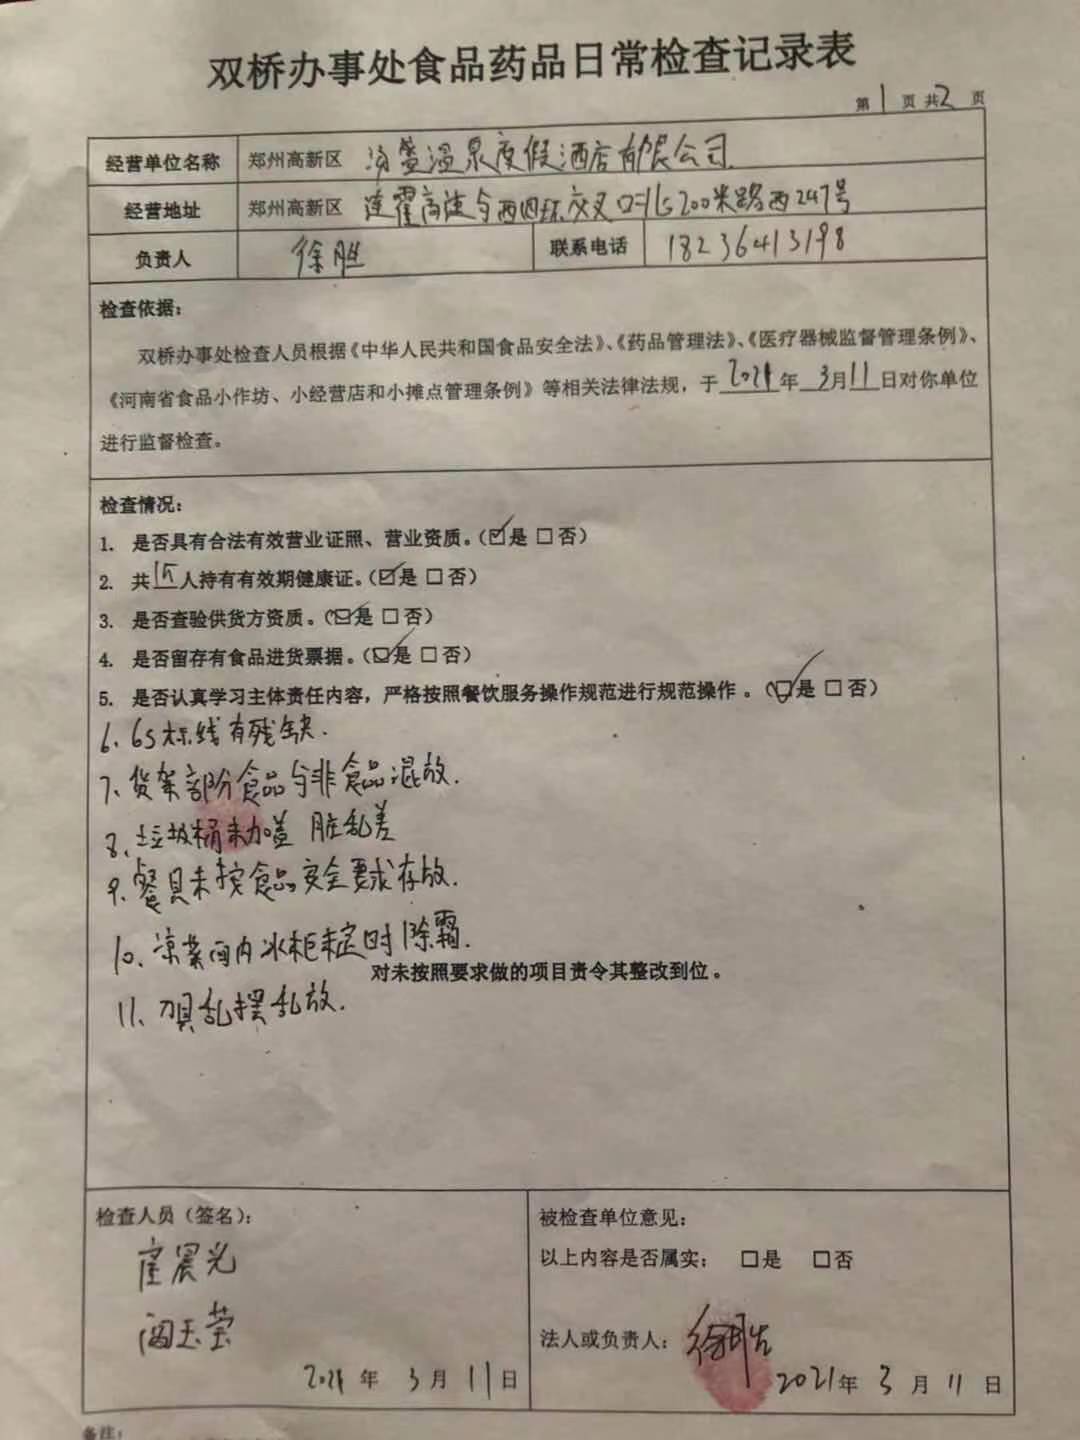 双桥办事处食品药品日常检查记录表
第1页 共2页
经营单位名称 郑州高新区 汤盛温泉度假酒店有限公司.
经营地址 郑州高新区 连霍高速与西四环交叉口北200米路西247号
负责人 徐胜 联系电话 18236413198
检查依据:
双桥办事处检查人员根据《中华人民共和国食品安全法》、《药品管理法》、《医疗器械监督管理条例》、
《河南省食品小作坊、小经营店和小摊点管理条例》等相关法律法规，于2021年3月11日对你单位
进行监督检查。
检查情况:
1. 是否具有合法有效营业证照、营业资质。(☑是 □否)
2. 共15人持有有效期健康证。(☑是 □否)
3. 是否查验供货方资质。(☑是 □否)
4. 是否留存有食品进货票据。(☑是 □否)
5. 是否认真学习主体责任内容，严格按照餐饮服务操作规范进行规范操作 。(☑是 □否)
6、6S标线有残缺.
7、货架部份食品与非食品混放.
8、垃圾桶未加盖 脏乱差
9、餐具未按食品安全要求存放.
10、凉菜间内冰柜未定时除霜.
对未按照要求做的项目责令其整改到位。
11、刀具乱摆乱放.
检查人员(签名):
晨光
阎玉莹
2021年 3月11日
被检查单位意见:
以上内容是否属实: □是 □否
法人或负责人: 徐胜
2021年 3月11日
备注: